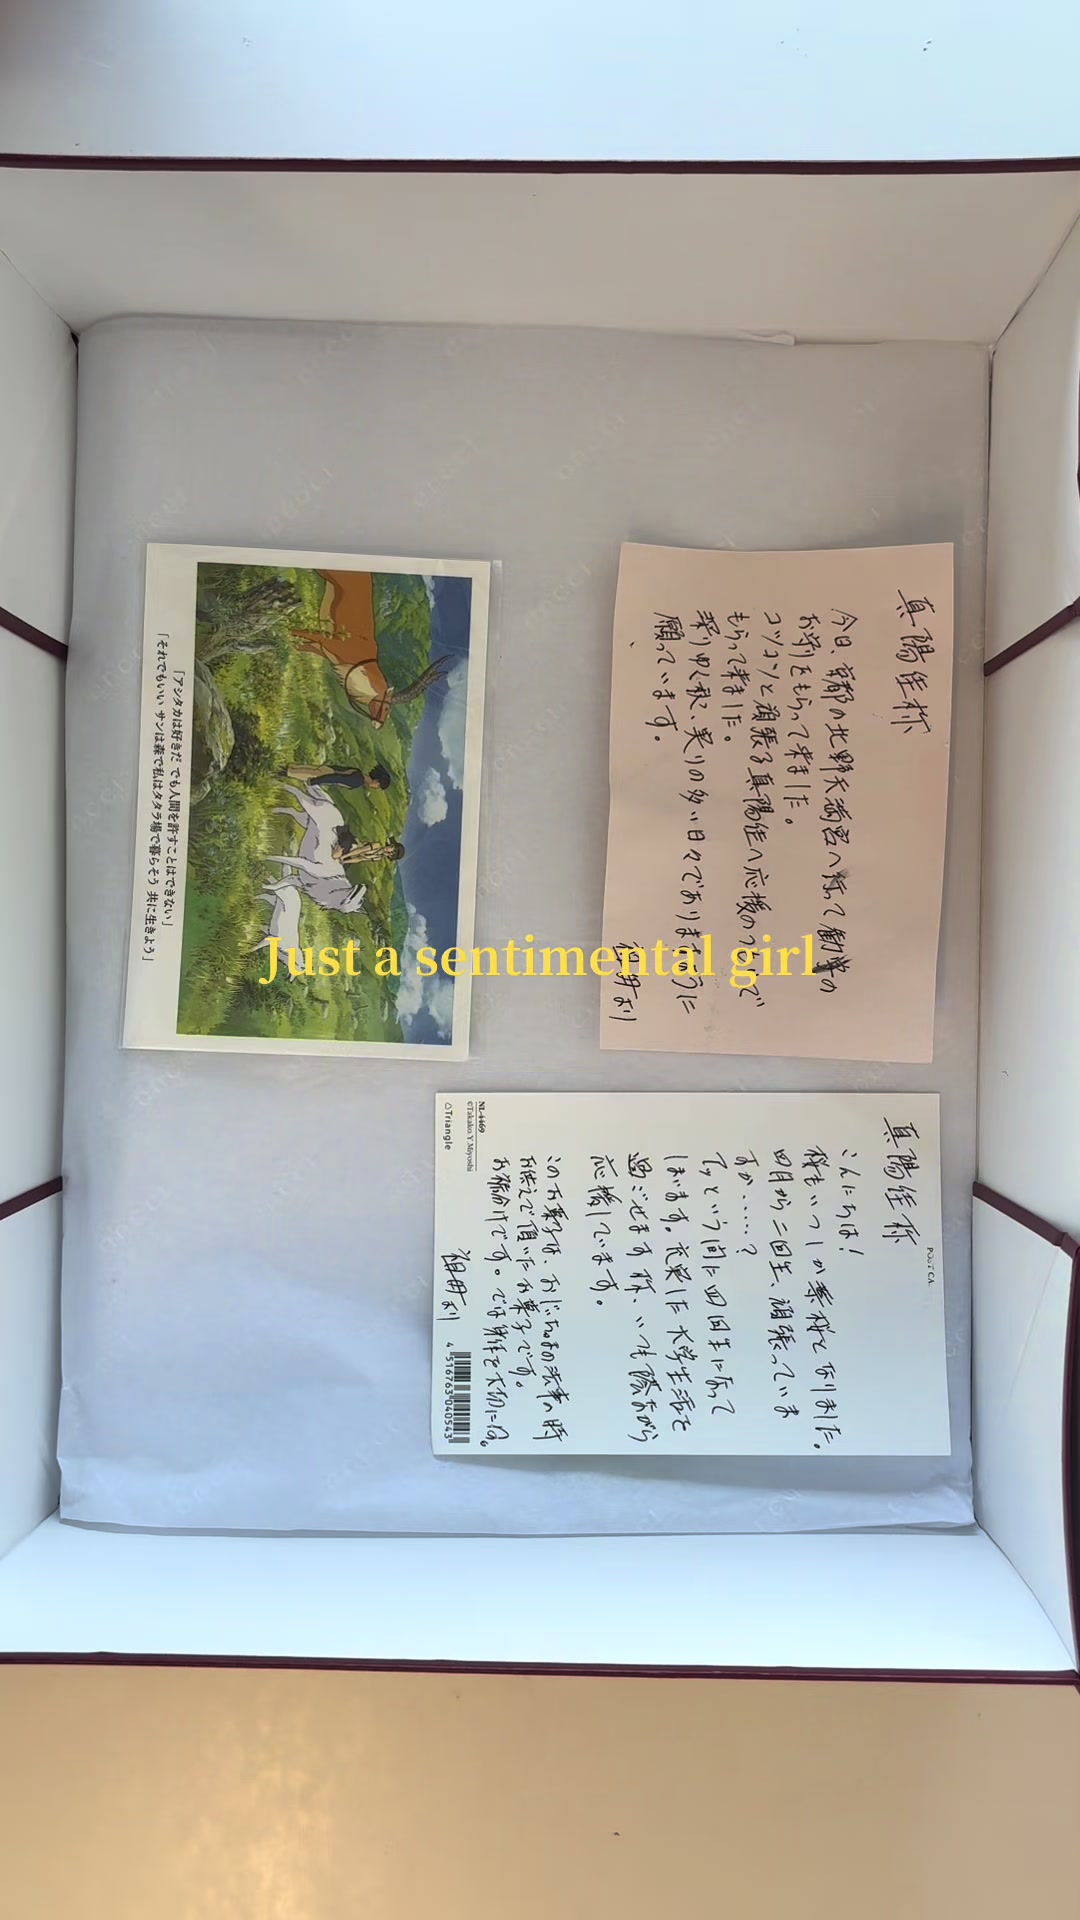 真陽佳称
今日、京都の北野天満宮へ行って勧学の
お守りをもらって来ました。
コツコツと頑張る真陽佳へ応援の
もらって来ました。
深りゆく秋、実りの多い日々であります
願っています。
祖母より
「アシタカは好きだ でも人間を許すことはできない」
「それでもいい サンは森で私はタタラ場で暮らそう 共に生きよう」
Just a sentimental girl
POST CA
真陽佳称
こんにちは!
桜もいつしか葉桜となりました。
四月から二回生、頑張っていま
すか……?
アッという間に四回生になって
しまいます。充実した大学生活を
過ごせます称、いつも陰ながら
応援しています。
このお菓子は、おじいちゃまの法事の時
お供えで頂いたお菓子です。
お福分けです。では身体を大切にね。
祖母より
NL-4469
©Takako.Y.Miyoshi
△Triangle
4 516763 040543